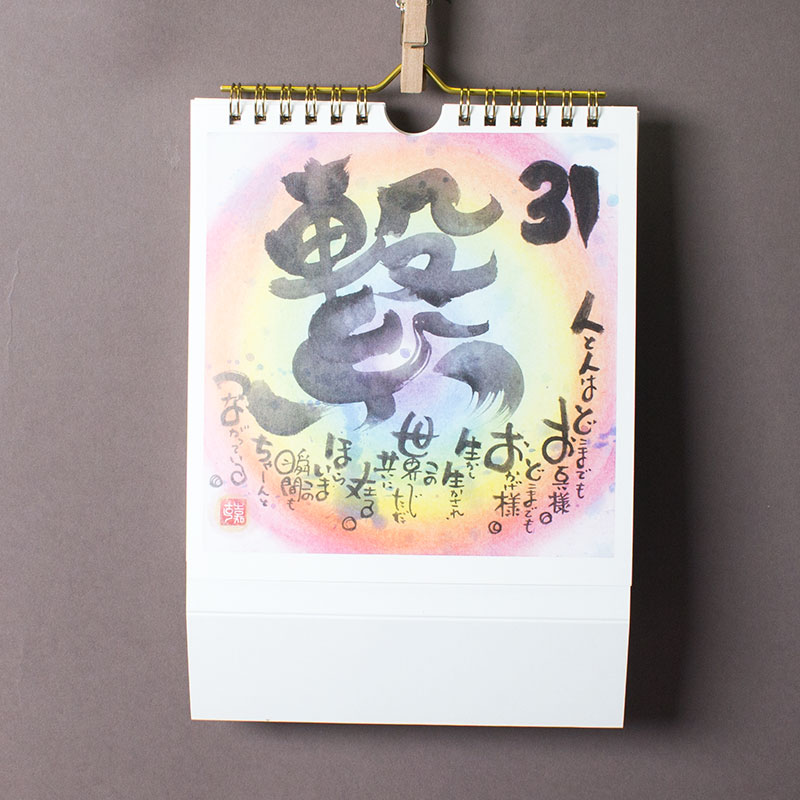 31
繋
人と人は
どこまでも
お互い様。
どこまでも
おかげ様。
生かし
生かされ、
この世界
ただ
共に
ほらいま
この瞬間も
ちゃーんと
つながっている。